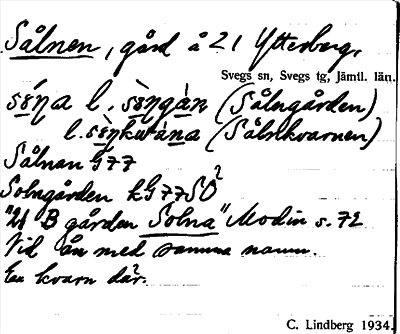 Sålnen, gård å 21 Ytterberg,
Svegs sn, Svegs tg, Jämtl. län.
sǿŋa l. sǿŋgàn (Sålngården)
l. sǿŋkwàna (Sålnkvarnen)
Sålnan G77
Solngården kG77SO²
"21 B gården Solna" Modin s. 72
Vid ån med samma namn.
En kvarn där.
C. Lindberg 1934.